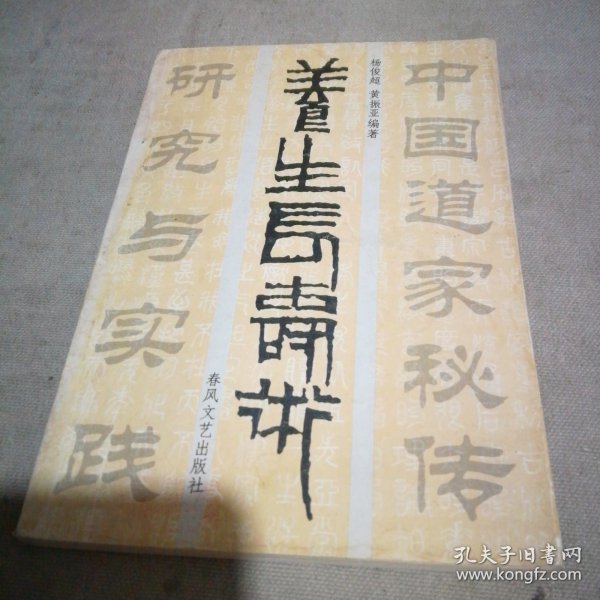 中国道家秘传
杨俊超 黄振亚编著
养生长寿术
春风文艺出版社
研究与实践
孔夫子旧书网
www.kongfz.com